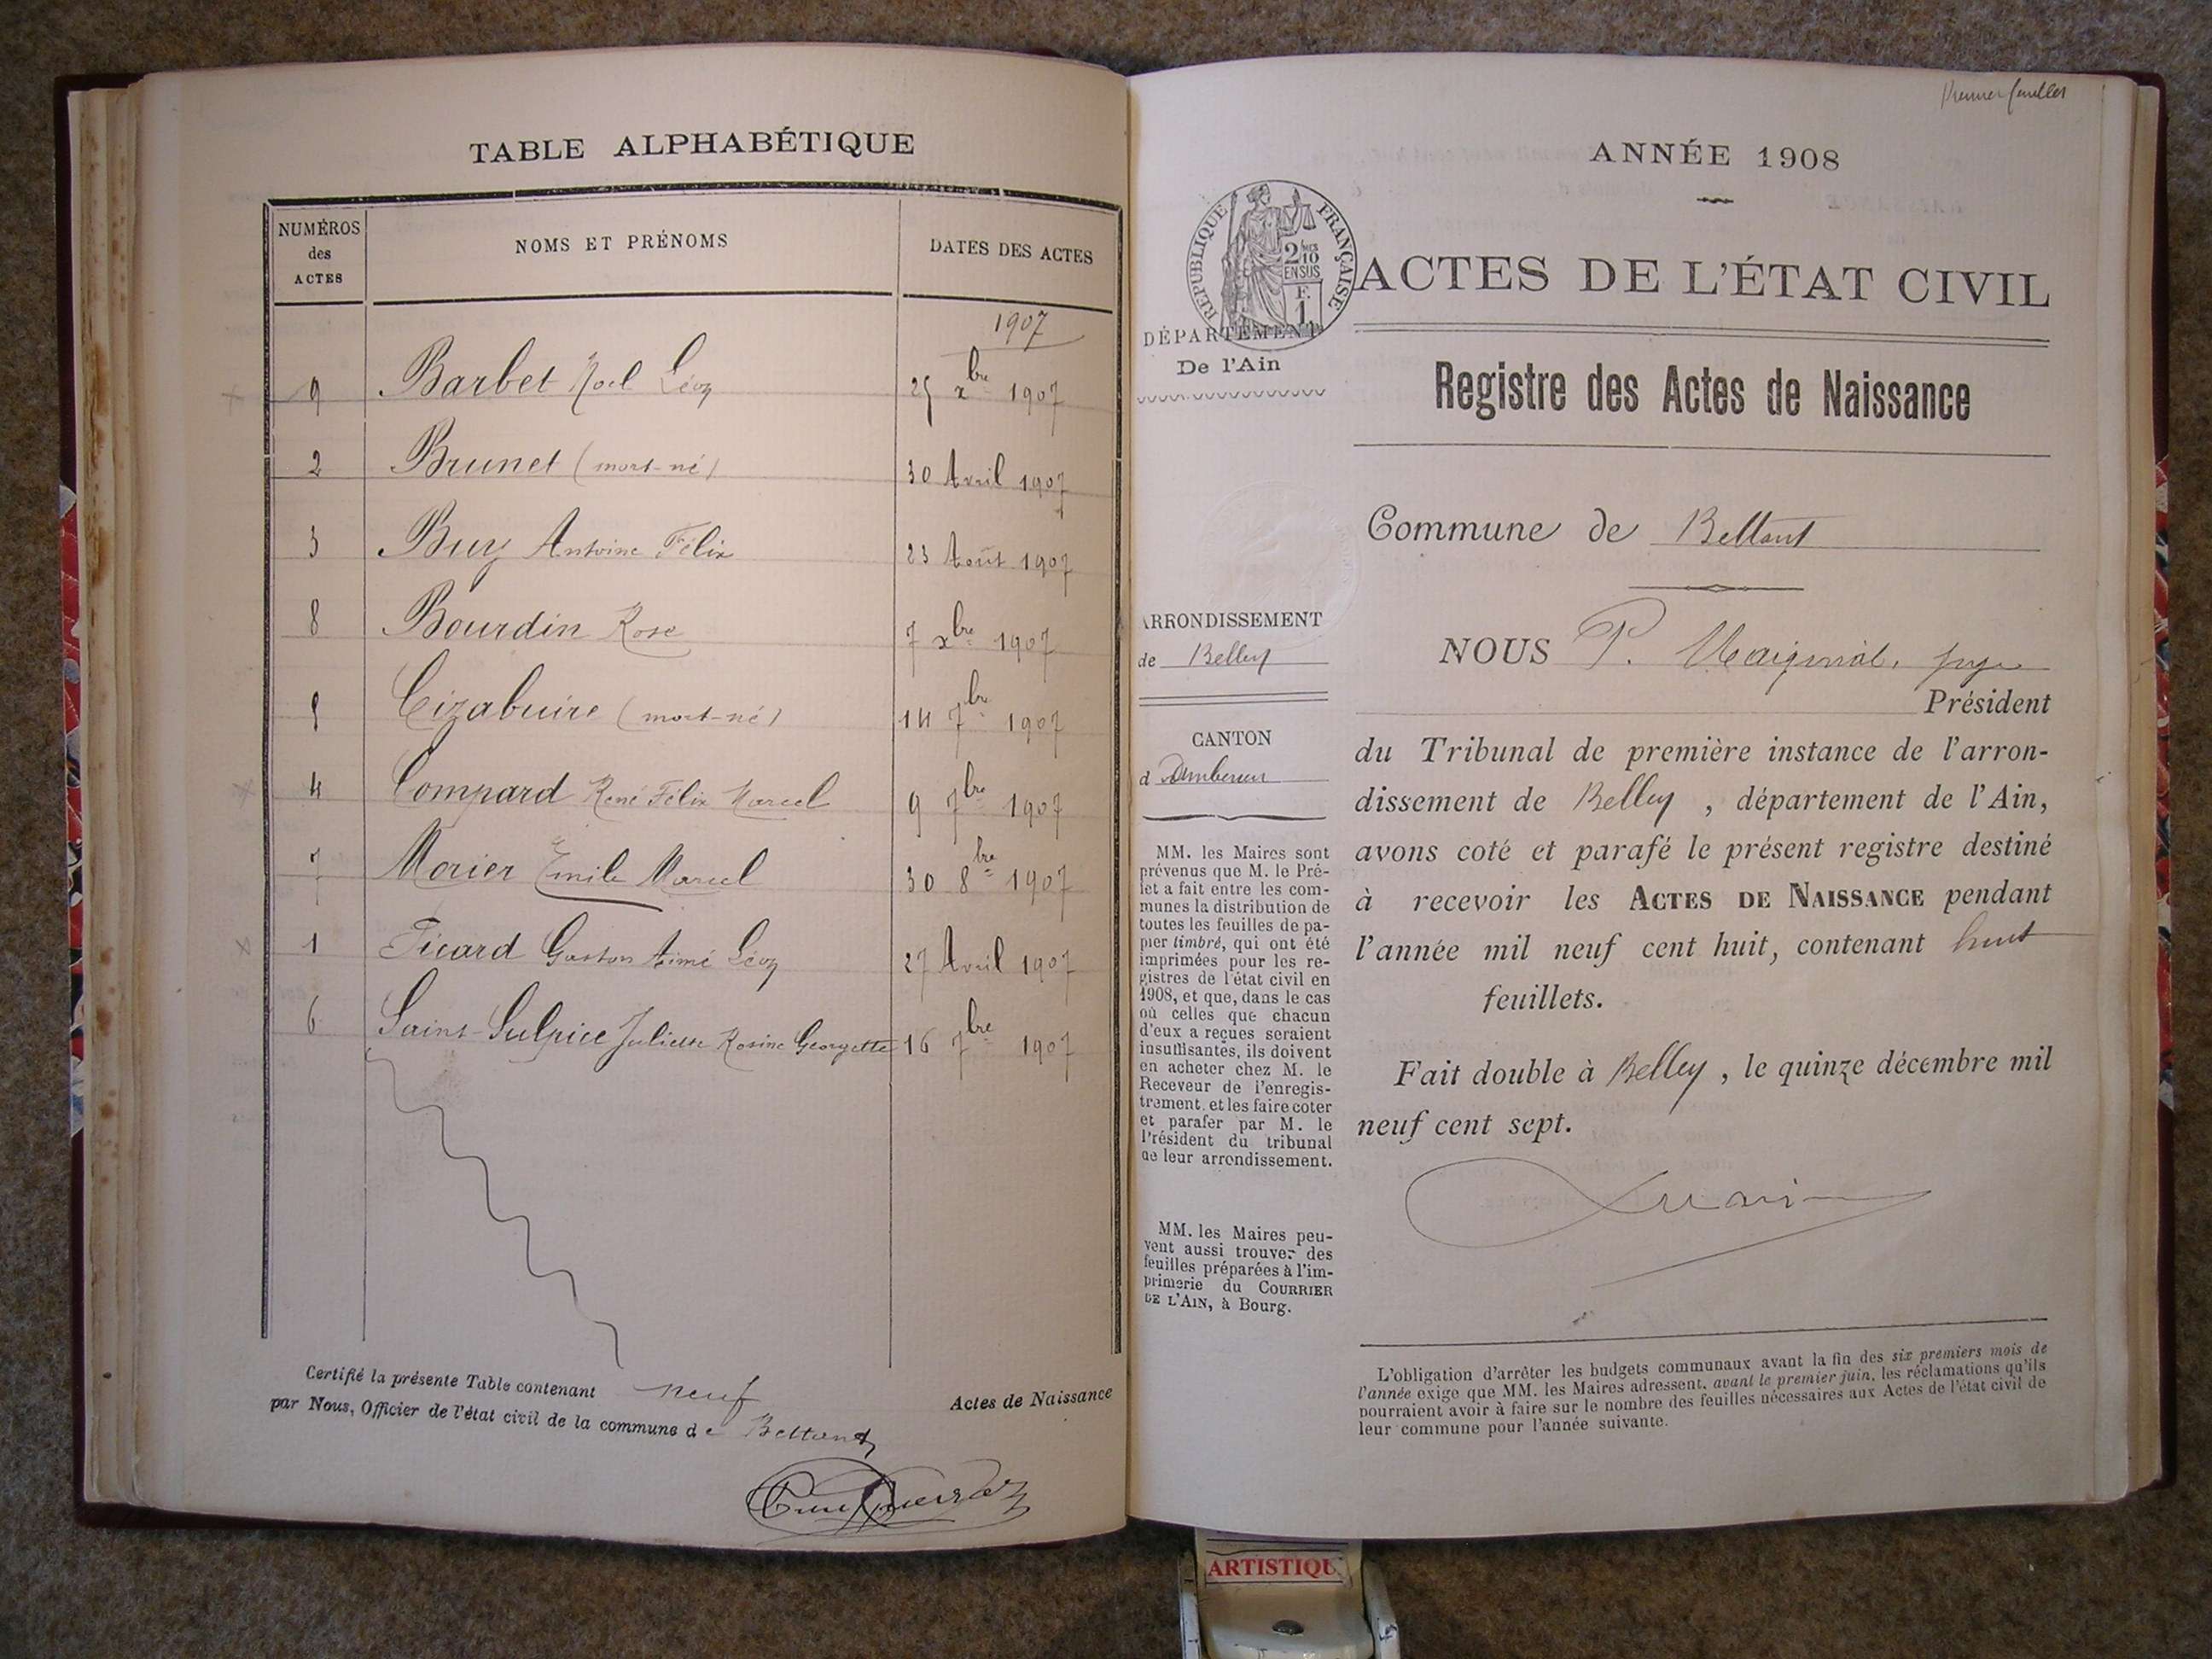 TABLE ALPHABÉTIQUE
NUMÉROS
des
ACTES
NOMS ET PRÉNOMS
DATES DES ACTES
1907
9 Barbet Noel Léon 25 xbre 1907
2 Brunet (mort-né) 30 Avril 1907
3 Buy Antoine Félix 23 Août 1907
8 Bourdin Rose 7 xbre 1907
5 Cizabuire (mort-né) 14 7bre 1907
4 Compard René Félix Marcel 9 7bre 1907
7 Morier Emile Marcel 30 8bre 1907
1 Picard Gaston Aimé Léon 27 Avril 1907
6 Saint-Sulpice Juliette Rosine Georgette 16 7bre 1907
Certifié la présente Table contenant neuf Actes de Naissance
par Nous, Officier de l'état civil de la commune de Bettant
Premier feuillet
ANNÉE 1908
RÉPUBLIQUE FRANÇAISE
2/10
EN SUS
F.
1
ACTES DE L'ÉTAT CIVIL
DÉPARTEMENT
De l'Ain
Registre des Actes de Naissance
Commune de Bettant
ARRONDISSEMENT
de Belley
CANTON
d'Ambérieu
MM. les Maires sont
prévenus que M. le Pré-
fet a fait entre les com-
munes la distribution de
toutes les feuilles de pa-
pier timbré, qui ont été
imprimées pour les re-
gistres de l'état civil en
1908, et que, dans le cas
où celles que chacun
d'eux a reçues seraient
insuffisantes, ils doivent
en acheter chez M. le
Receveur de l'enregis-
trement, et les faire coter
et parafer par M. le
Président du tribunal
de leur arrondissement.
MM. les Maires peu-
vent aussi trouver des
feuilles préparées à l'im-
primerie du COURRIER
DE L'AIN, à Bourg.
NOUS P. juge
Président
du Tribunal de première instance de l'arron-
dissement de Belley, département de l'Ain,
avons coté et parafé le présent registre destiné
à recevoir les ACTES DE NAISSANCE pendant
l'année mil neuf cent huit, contenant huit
feuillets.
Fait double à Belley, le quinze décembre mil
neuf cent sept.
L'obligation d'arrêter les budgets communaux avant la fin des six premiers mois de
l'année exige que MM. les Maires adressent, avant le premier juin, les réclamations qu'ils
pourraient avoir à faire sur le nombre des feuilles nécessaires aux Actes de l'état civil de
leur commune pour l'année suivante.
ARTISTIQU